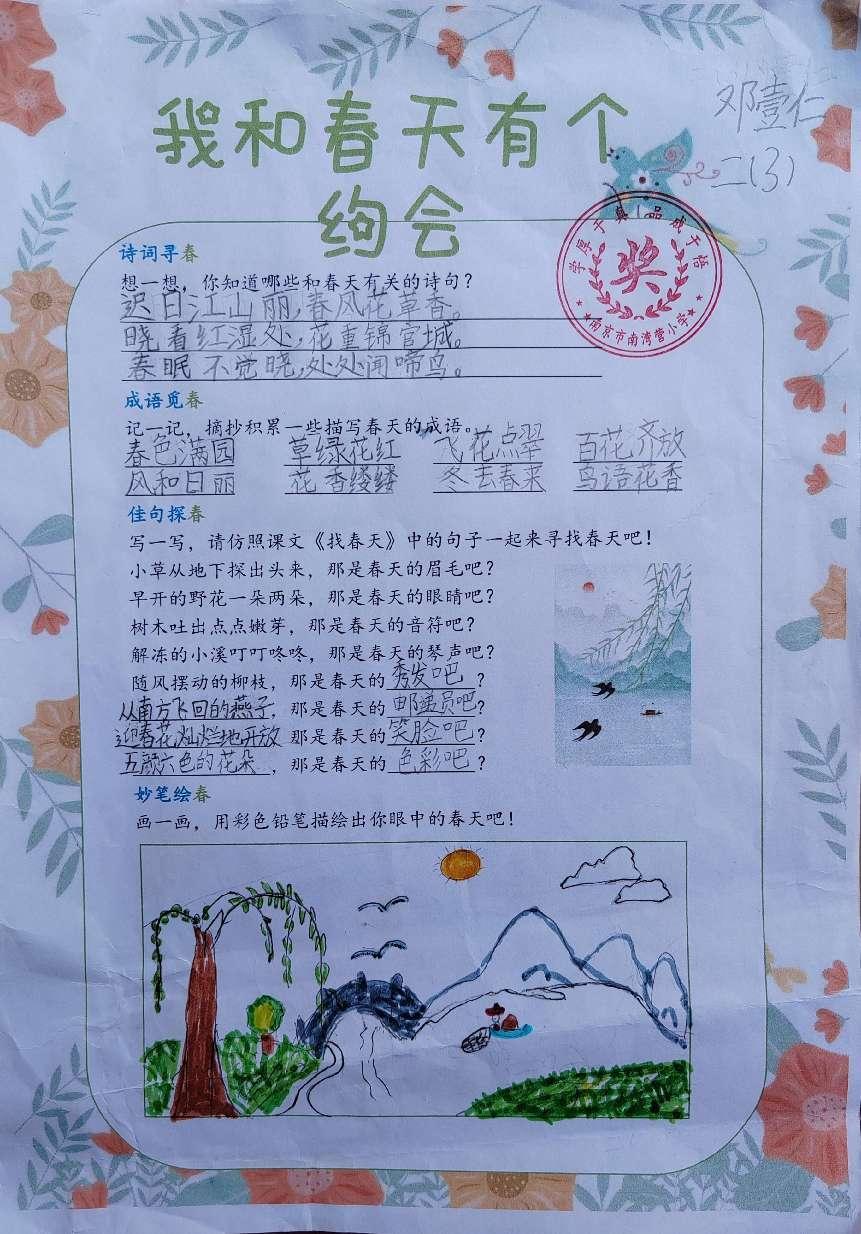 我和春天有个
绚会
邓壹仁
二(3)
学厚于真 品成于悟
奖
★南京市南湾营小学★
诗词寻春
想一想，你知道哪些和春天有关的诗句？
迟日江山丽，春风花草香。
晓看红湿处，花重锦官城。
春眠不觉晓，处处闻啼鸟。
成语觅春
记一记，摘抄积累一些描写春天的成语。
春色满园 草绿花红 飞花点翠 百花齐放
风和日丽 花香缕缕 冬去春来 鸟语花香
佳句探春
写一写，请仿照课文《找春天》中的句子一起来寻找春天吧！
小草从地下探出头来，那是春天的眉毛吧？
早开的野花一朵两朵，那是春天的眼睛吧？
树木吐出点点嫩芽，那是春天的音符吧？
解冻的小溪叮叮咚咚，那是春天的琴声吧？
随风摆动的柳枝，那是春天的秀发吧？
从南方飞回的燕子，那是春天的邮递员吧？
迎春花灿烂地开放 那是春天的笑脸吧？
五颜六色的花朵，那是春天的色彩吧？
妙笔绘春
画一画，用彩色铅笔描绘出你眼中的春天吧！